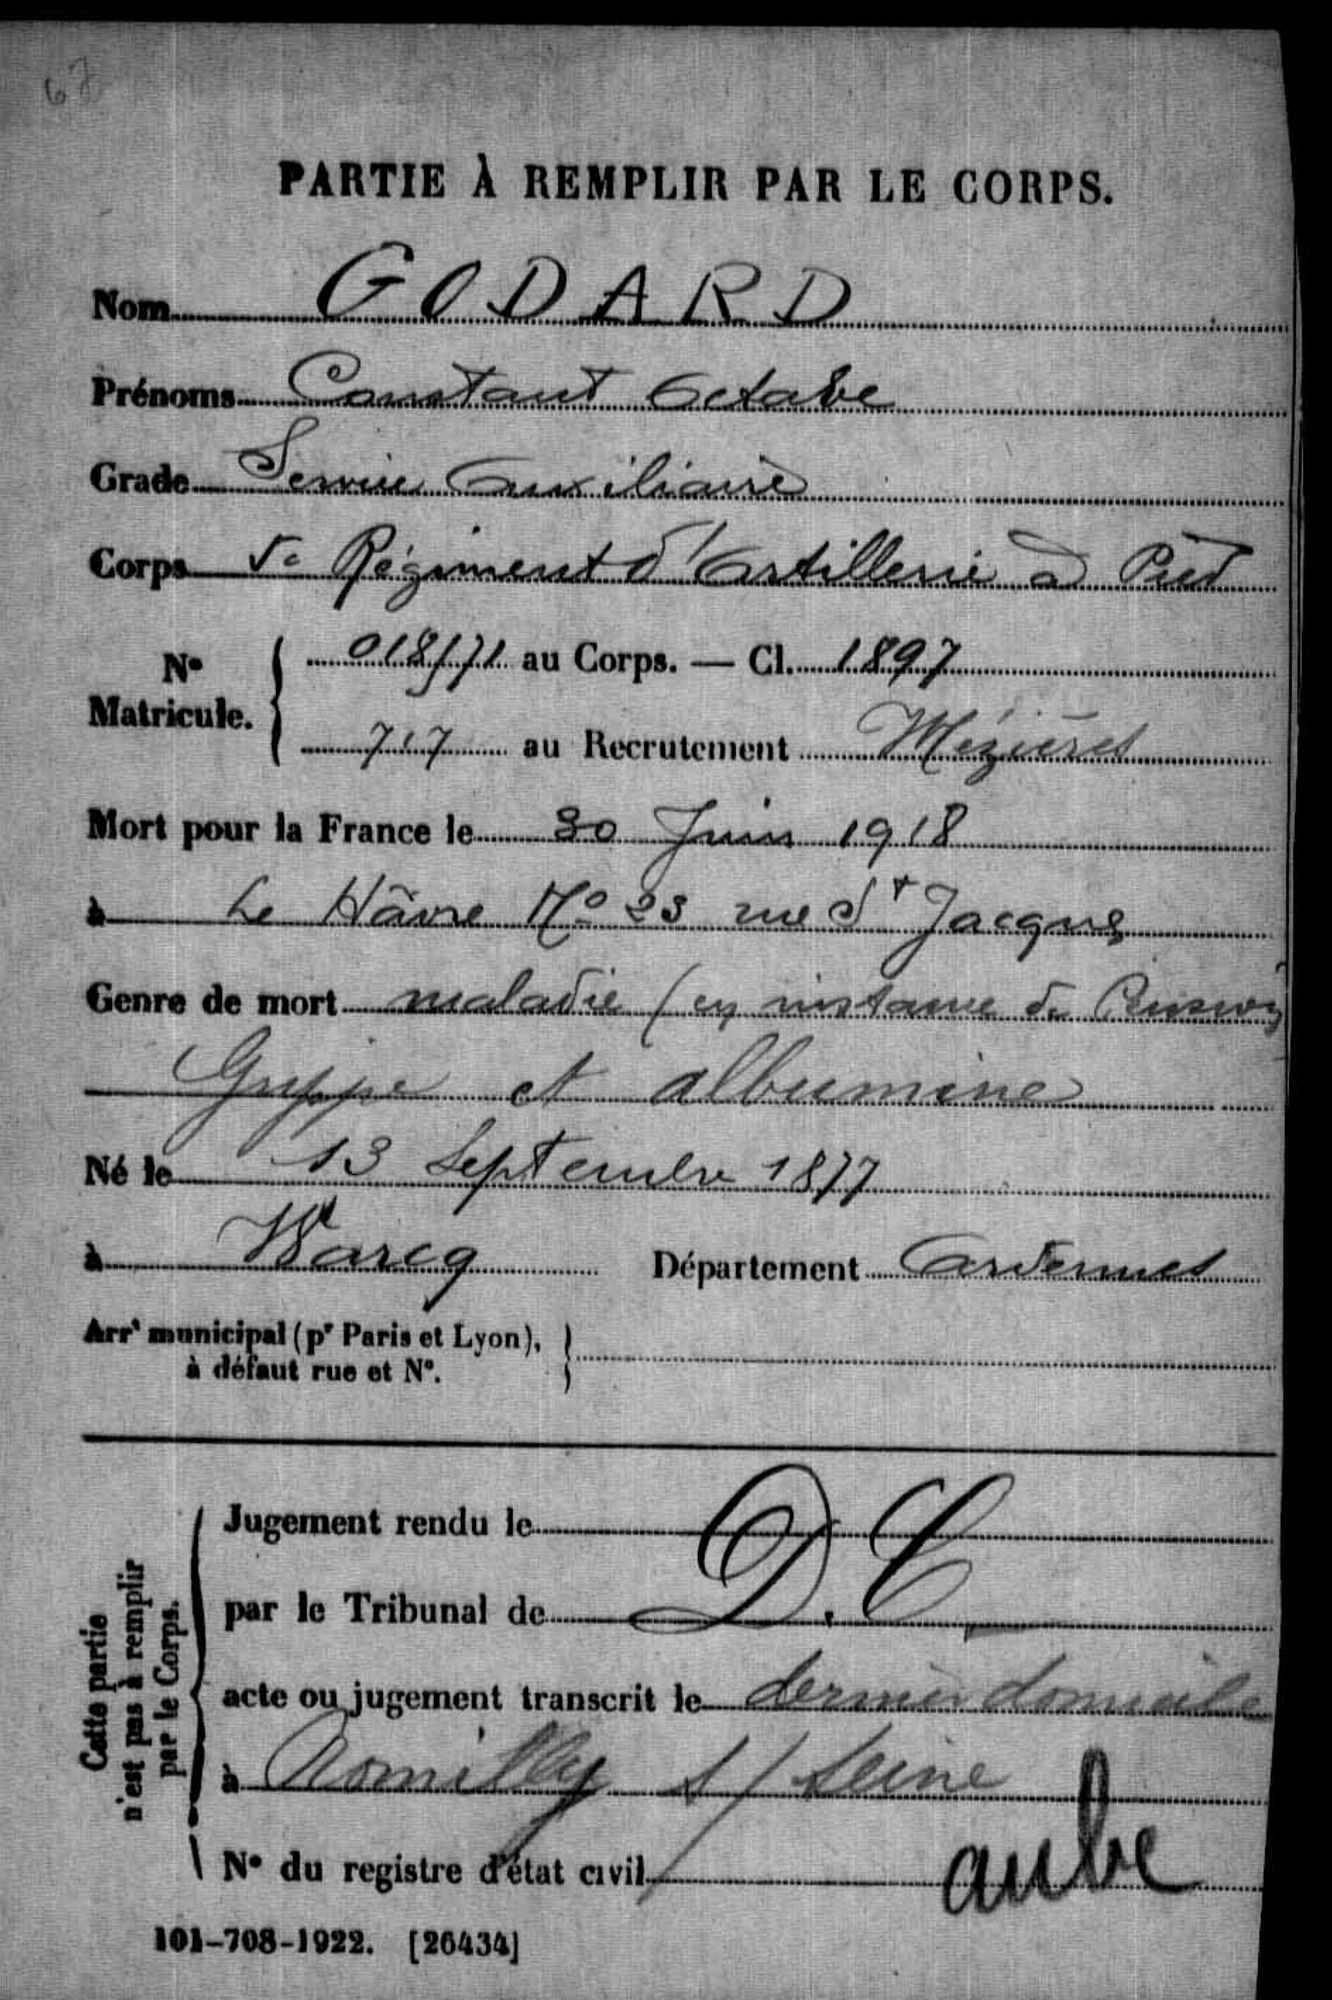 67
PARTIE À REMPLIR PAR LE CORPS.
Nom GODARD
Prénoms Constant Octave
Grade Service Auxiliaire
Corps 5e Régiment d'Artillerie à Pied
No Matricule. 018571 au Corps. — Cl. 1897
717 au Recrutement Mézières
Mort pour la France le 30 Juin 1918
à Le Hâvre No 23 rue St Jacques
Genre de mort maladie (en instance de
Grippe et albumine
Né le 13 Septembre 1877
à Warcq Département Ardennes
Arrt municipal (pr Paris et Lyon),
à défaut rue et No.
Cette partie
n'est pas à remplir
par le Corps.
Jugement rendu le
par le Tribunal de D.C.
acte ou jugement transcrit le dernier domicile
à Romilly s/ Seine
aube
No du registre d'état civil
101-708-1922. [26434]